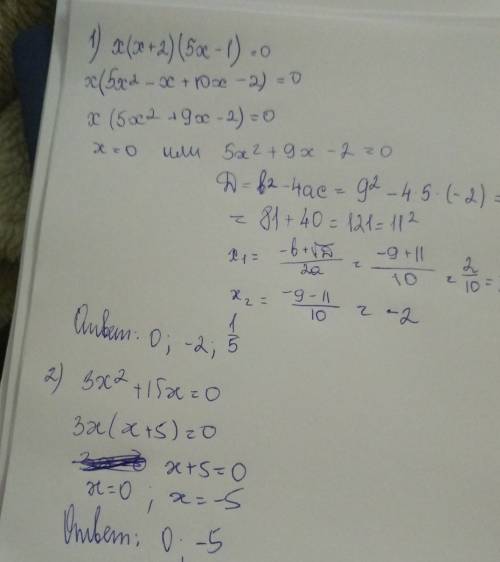 1) x(x+2)(5x-1)=0
x(5x²-x+10x-2)=0
x(5x²+9x-2)=0
x=0 или 5x²+9x-2=0
D=b²-4ac=9²-4·5·(-2)=
=81+40=121=11²
x₁= (-b+√D)/2a = (-9+11)/10 = 2/10 =
x₂= (-9-11)/10 = -2
Ответ: 0; -2; 1/5
2) 3x²+15x=0
3x(x+5)=0
x+5=0
x=0 ; x=-5
Ответ: 0; -5